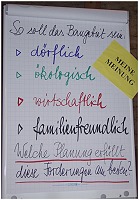 So soll das Baugebiet sein:
dörflich
MEINE
MEINUNG
ökologisch
wirtschaftlich
familienfreundlich
Welche Planung erfüllt
diese Forderungen am besten?